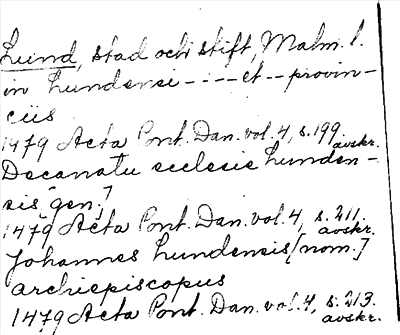 Lund, stad och stift, Malm. l.
in Lundensi - - - - et - - provin-
ciis
1479 Acta Pont. Dan. vol. 4, s. 199.
avskr.
Decanatu ecclesie Lunden-
sis [gen.]
1479 Acta Pont. Dan. vol. 4, s. 211.
avskr.
Johannes Lundensis [nom.]
archiepiscopus
1479 Acta Pont. Dan. vol. 4, s. 213.
avskr.